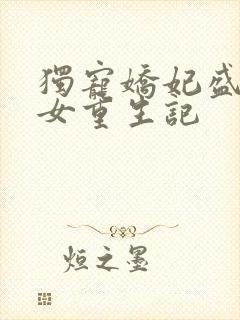 獨寵嬌妃盛
女重生記
烜之墨